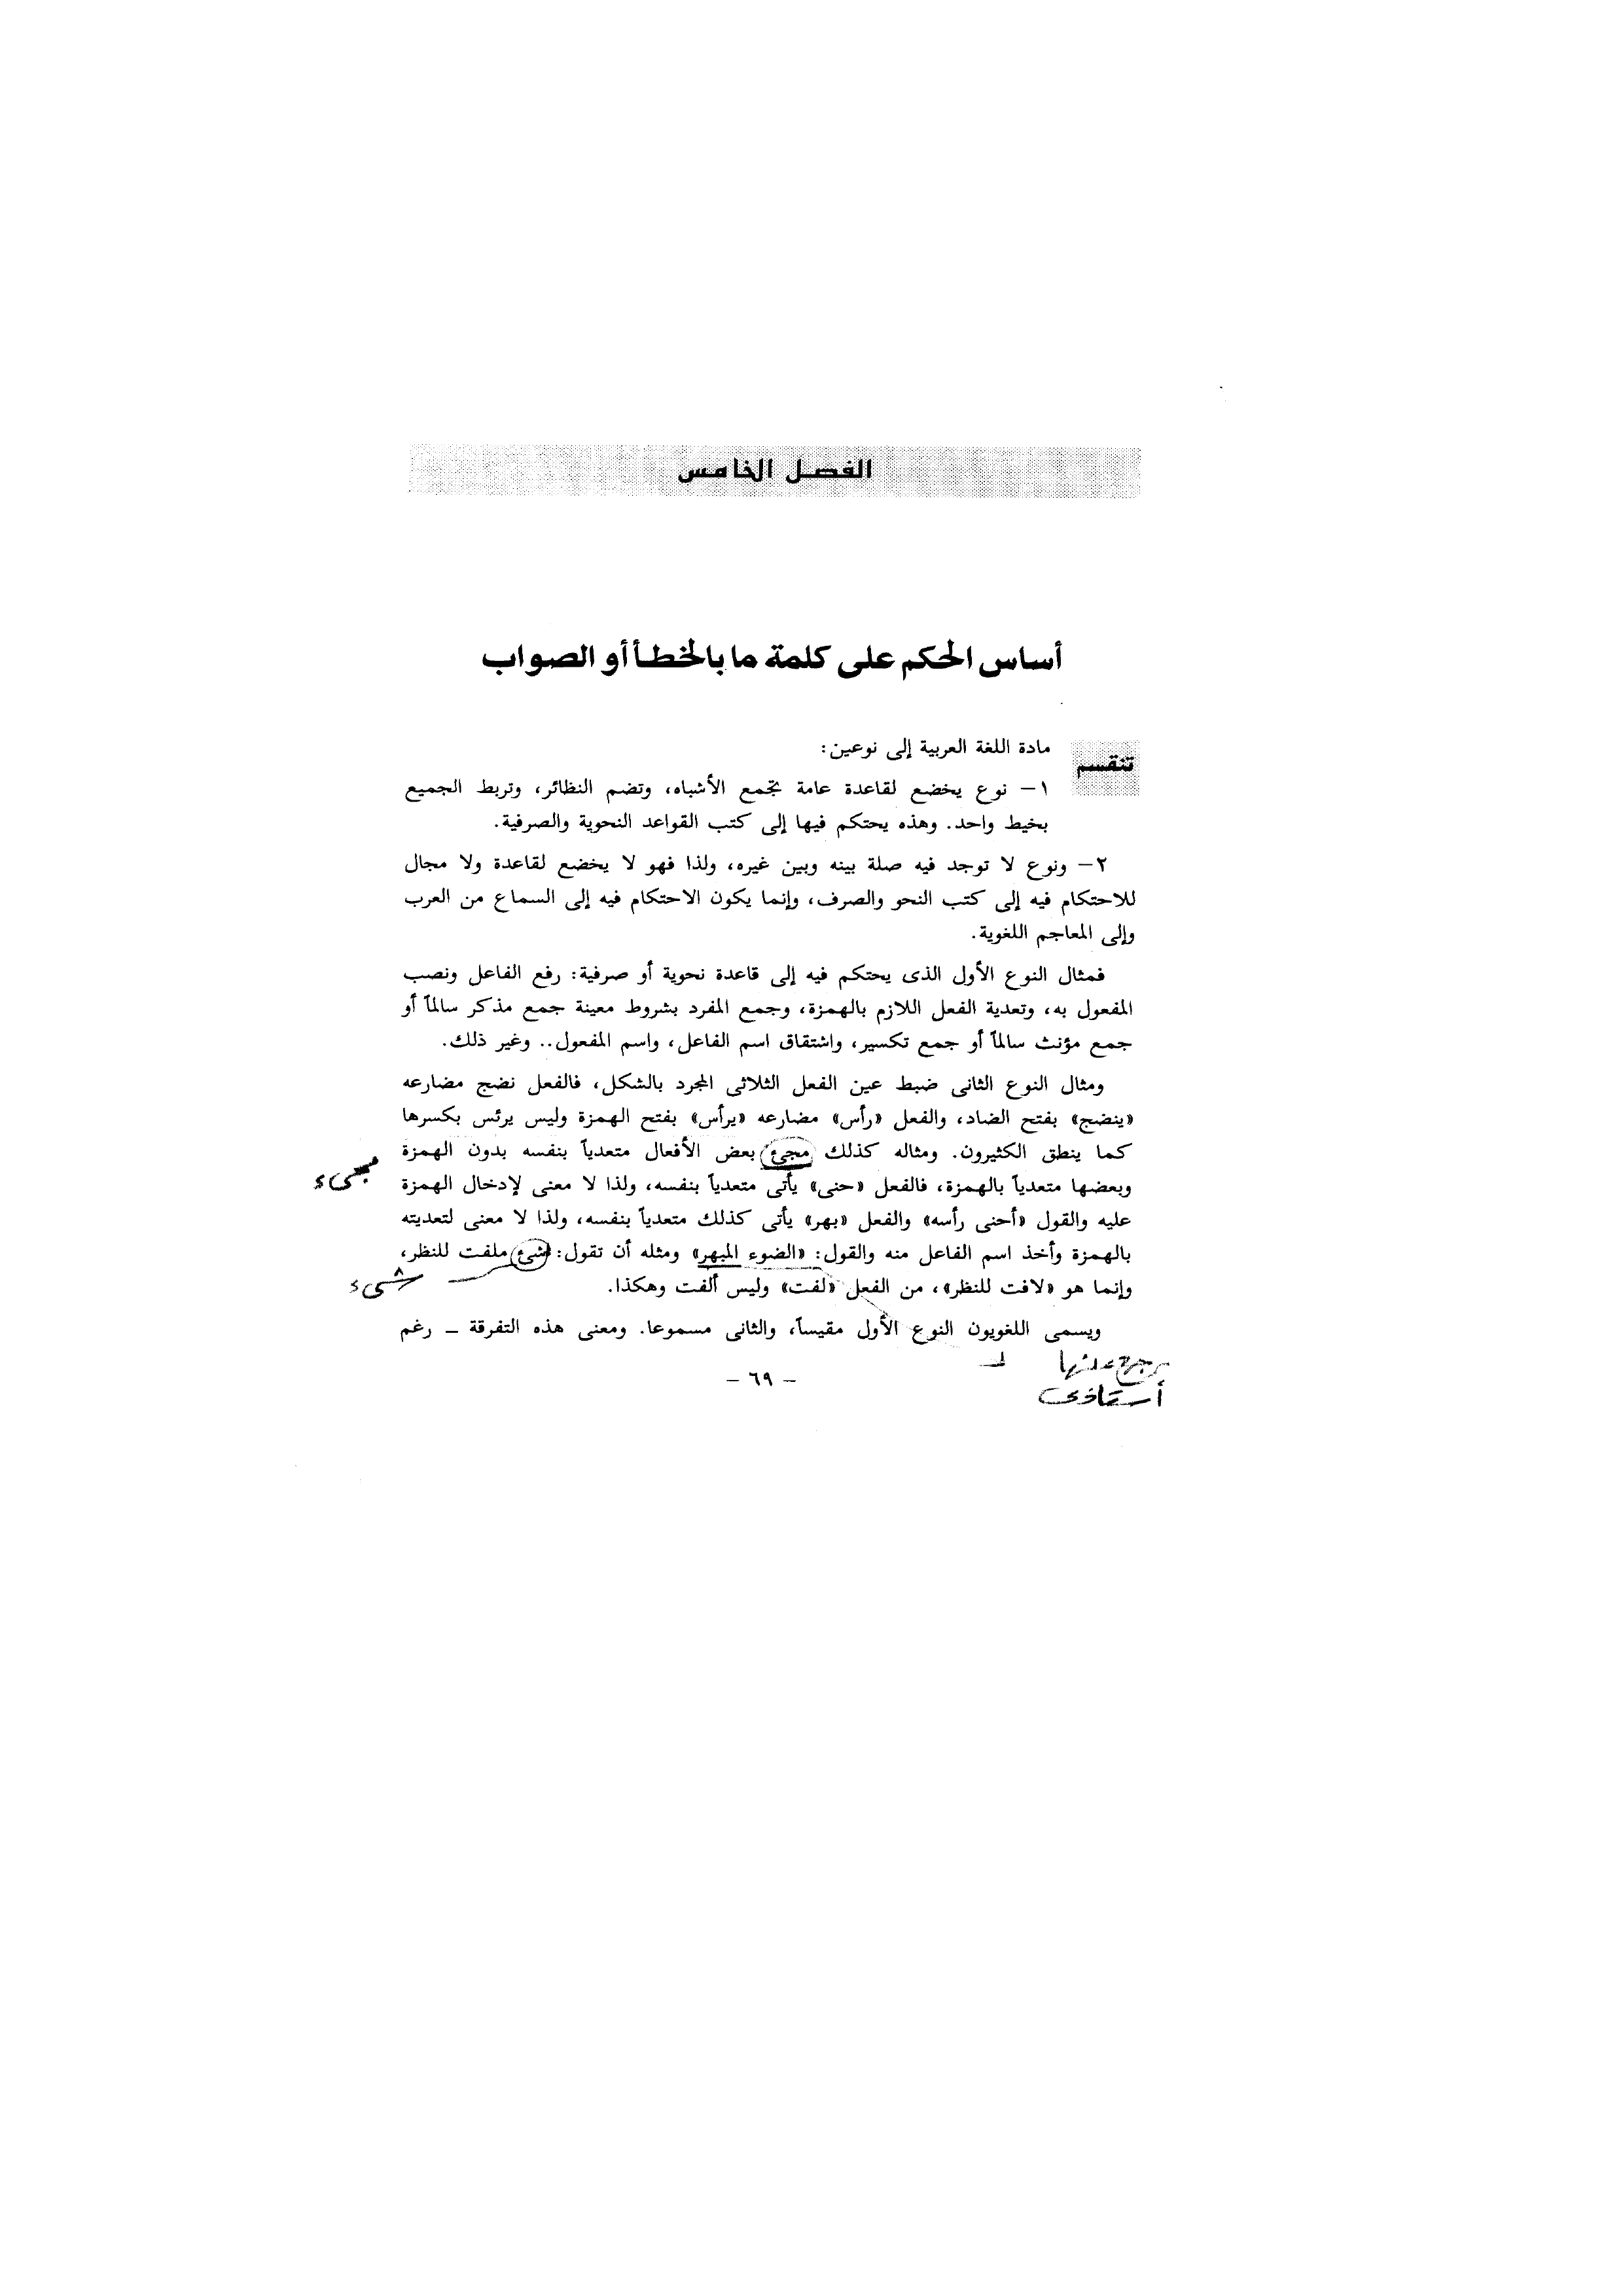 الفصل الخامس
أساس الحكم على كلمة ما بالخطأ أو الصواب
تنقسم مادة اللغة العربية إلى نوعين:
١- نوع يخضع لقاعدة عامة تجمع الأشباه، وتضم النظائر، وتربط الجميع
بخيط واحد. وهذه يحتكم فيها إلى كتب القواعد النحوية والصرفية.
٢- ونوع لا توجد فيه صلة بينه وبين غيره، ولذا فهو لا يخضع لقاعدة ولا مجال
للاحتكام فيه إلى كتب النحو والصرف، وإنما يكون الاحتكام فيه إلى السماع من العرب
وإلى المعاجم اللغوية.
فمثال النوع الأول الذى يحتكم فيه إلى قاعدة نحوية أو صرفية: رفع الفاعل ونصب
المفعول به، وتعدية الفعل اللازم بالهمزة، وجمع المفرد بشروط معينة جمع مذكر سالماً أو
جمع مؤنث سالماً أو جمع تكسير، واشتقاق اسم الفاعل، واسم المفعول.. وغير ذلك.
ومثال النوع الثانى ضبط عين الفعل الثلاثى المجرد بالشكل، فالفعل نضج مضارعه
«ينضج» بفتح الضاد، والفعل «رأس» مضارعه «يرأس» بفتح الهمزة وليس يرئس بكسرها
كما ينطق الكثيرون. ومثاله كذلك مجئ بعض الأفعال متعدياً بنفسه بدون الهمزة
مجىء
وبعضها متعدياً بالهمزة، فالفعل «حنى» يأتى متعدياً بنفسه، ولذا لا معنى لإدخال الهمزة
عليه والقول «أحنى رأسه» والفعل «بهر» يأتى كذلك متعدياً بنفسه، ولذا لا معنى لتعديته
بالهمزة وأخذ اسم الفاعل منه والقول: «الضوء المبهر» ومثله أن تقول: شئ ملفت للنظر،
شىء
وإنما هو «لافت للنظر»، من الفعل «لفت» وليس ألفت وهكذا.
ويسمى اللغويون النوع الأول مقيساً، والثانى مسموعا. ومعنى هذه التفرقة – رغم
أستاذى
- ٦٩ -